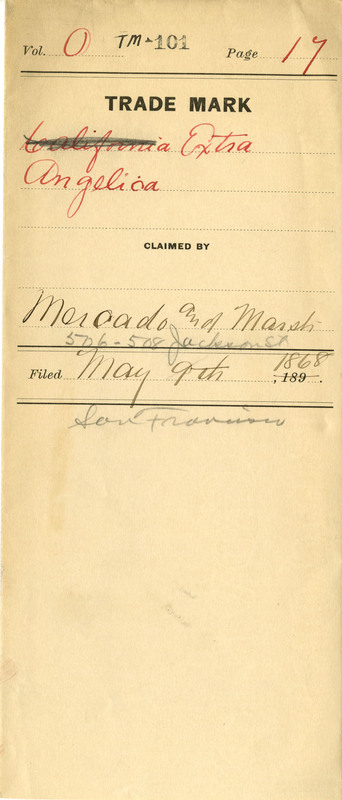 Vol. O TM-101 Page 17
TRADE MARK
California Extra
Angelica
CLAIMED BY
Mercado and Marsh
506-508 Jackson St
Filed May 9th 1868 , 189 .
San Francisco